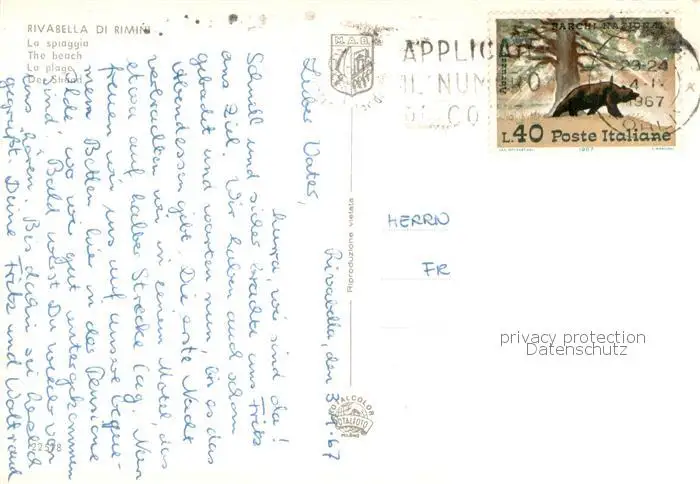 RIVABELLA DI RIMINI
La spiaggia
The beach
La plage
Der Strand
M.A.B.
APPLICATE
IL NUM O
DI CO
23-24
1967
PARCHI NAZIONALI
Abruzzo
L.40 Poste Italiane
1967
Rivabella, den 67
Lieber Vater,
hurra, wir sind da!
Schnell und sicher brachte uns Fritz
ans Ziel. Wir haben auch schon
gebadet und warten nun, bis es das
Abendessen gibt. Die erste Nacht
verbrachten wir in einem Motel, das
etwa auf halber Strecke lag. Nun
freuen wir uns auf unsere beque-
men Betten hier in der Pension
Hilde, wo wir gut untergekommen
sind. Bald wirst Du wieder von
uns hören. Bis dahin sei herzlich
gegrüßt. Deine Fritz und Waltraud
Riproduzione vietata
TOTALCOLOR
FOTALFOTO
MILANO
22578
HERRN
FR
privacy protection
Datenschutz